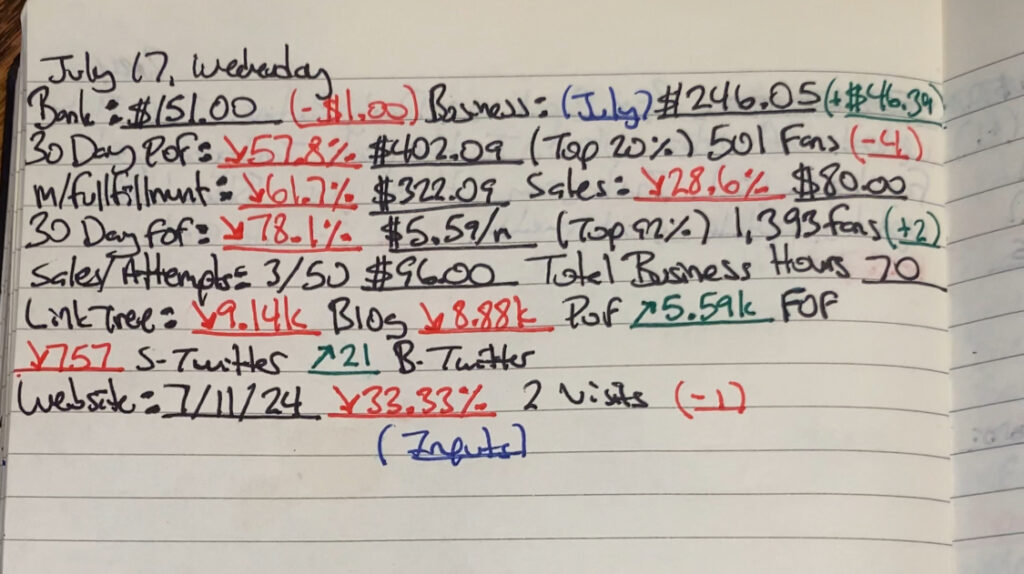 July 17, Wednesday
Bank: $151.00 (-$1.00) Business: (July) $246.05 (+$46.39)
30 Day Pof: ↘57.8% $402.09 (Top 20%) 501 Fans (-4)
m/fullfillment: ↘61.7% $322.09 Sales: ↘28.6% $80.00
30 Day fof: ↘78.1% $5.59/n (Top 92%) 1,393 fans (+2)
Sales/Attempts= 3/50 $96.00 Total Business Hours 70
Link Tree: ↘9.14k Blog ↘8.88k Pof ↗5.59k FOF
↘757 S-Twitter ↗21 B-Twitter
Website: 7/11/24 ↘33.33% 2 Visits (-1)
(Inputs)